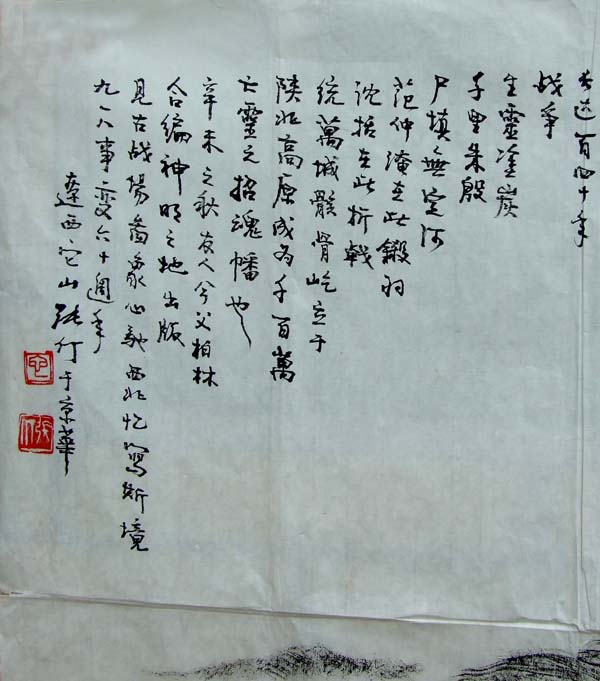 长达百四十年
战争
生靈塗炭
千里朱殷
尸填無定河
范仲淹在此鎩羽
沈括在此折戟
统萬城骸骨屹立于
陕北高原成为千百萬
亡靈之招魂幡也
辛未之秋友人兮父柏林
合编神明之地出版
見古战場畫象心馳西北忆寫斯境
九一八事变六十週年
遼西它山张仃于京華